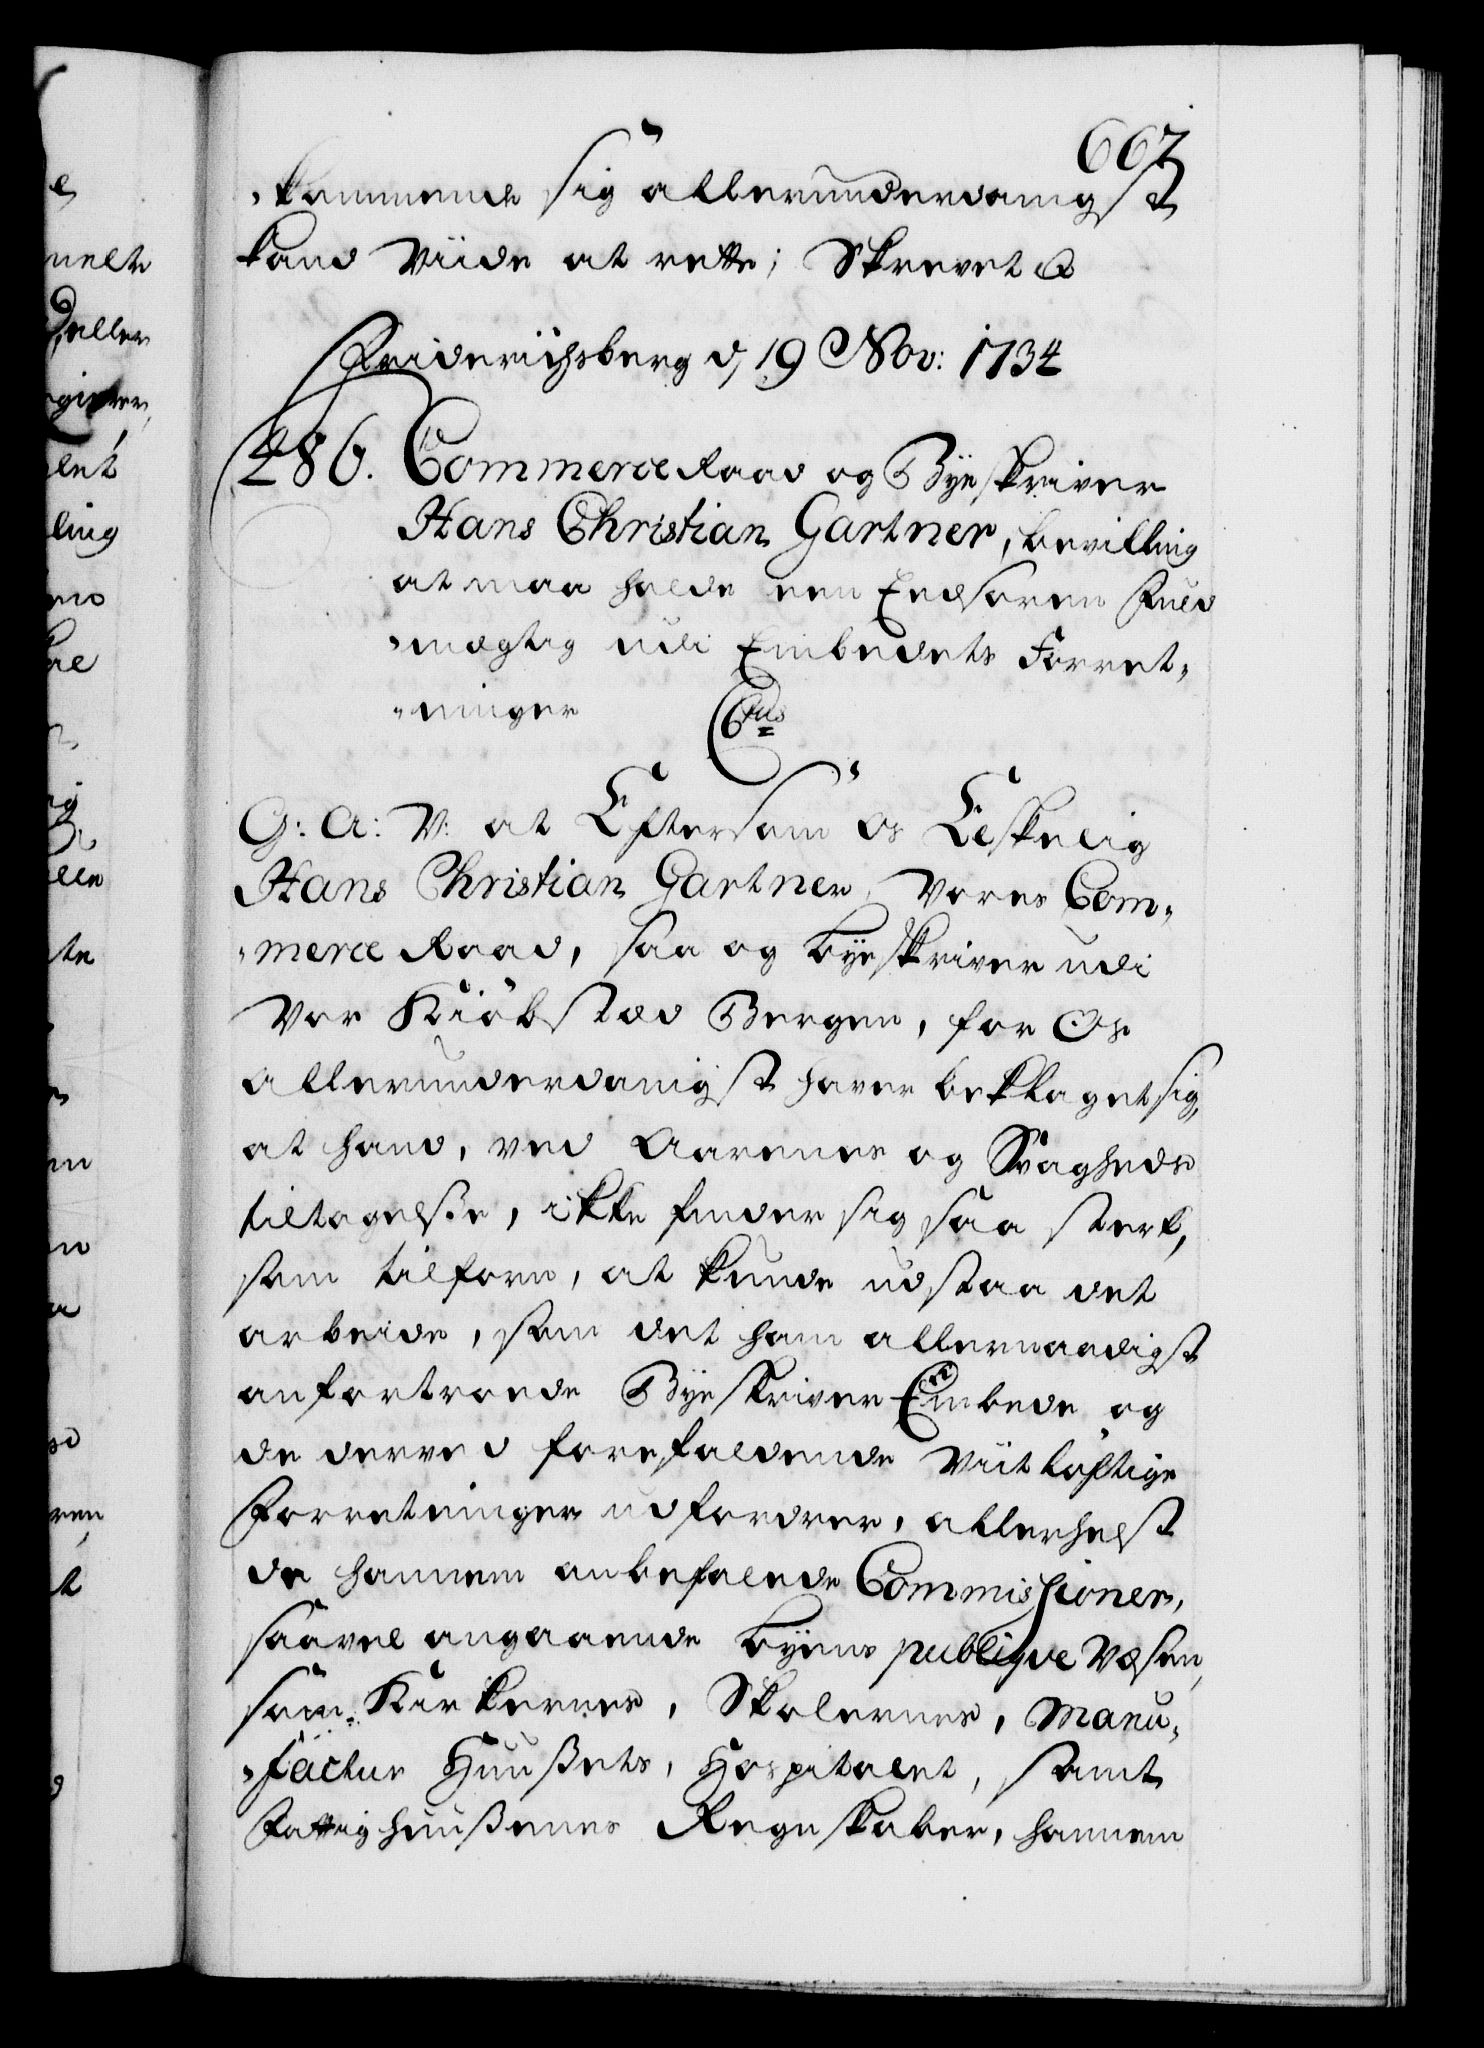 667
-kommende sig allerunderdanigst
kand viide at rette; Skrevet &
Friderichsberg d, 19 Nov: 1734
286. Commerce Raad og Byeskriver
Hans Christian Gartner, bevilling
at maa holde een Eedsoren Fuld
-mægtig udi Embedets Forret-
-ninger
C6tus
G: A: V: at Eftersom os Elskelig
Hans Christian Gartner, Vores Com-
-merce Raad, saa og byeskriver udi
Vor Kiöbstæd Bergen, for Os
allerunderdanigst haver beklaget sig,
at hand, ved Aarenes og Svagheds
tiltagelsße, ikke finder sig saa sterk,
som tilforn, at kunde udstaa det
arbeide, som det ham allernaadigst
anfortroede Byeskriver Embede og
de derved forefaldende viitløftige
Forretninger udfordrer, allerhelst
de hannem anbefalede Commissioner,
saavel angaaende byens publiqve Væsen,
som Kirkernes, Skolernes, Manu-
-factur Huußets, Hospitalet, samt
Fattighuußenes Regnskaber, hannem